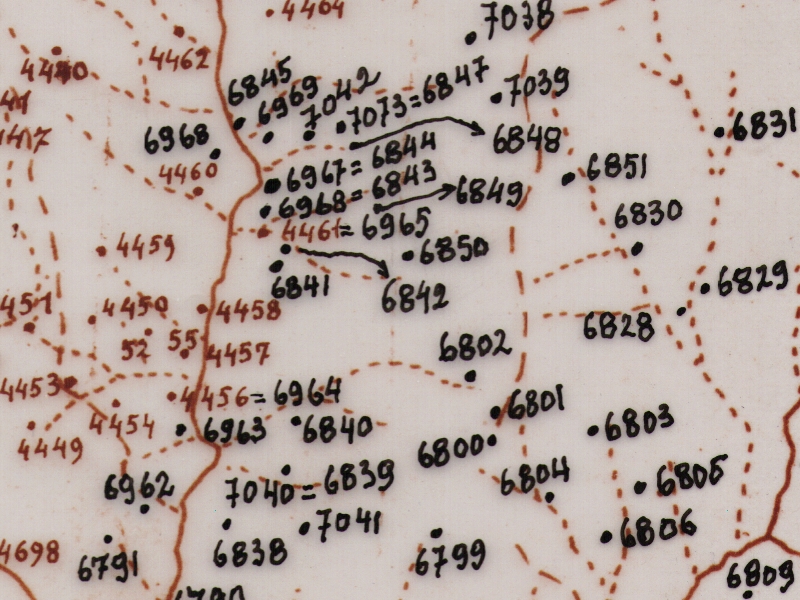 4464
7038
4462
4440
6845
6969
7042
7073=6847
7039
6968
6848
6831
6967=6844
4460
6968=6843
6849
6851
4461=6965
6830
4459
6850
6841
6842
6829
4451
4450
4458
6828
52
55
4457
6802
4453
4456=6964
6801
4454
6963
6840
6803
4449
6800
6962
7040=6839
6804
6805
7041
6806
4698
6791
6838
6799
6809